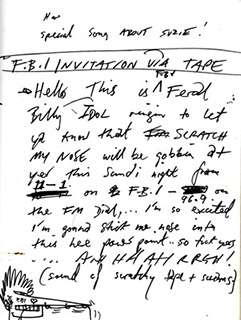 Now
special song ABOUT SUZIE!
F.B.I INVITATION VIA TAPE
Hello This is Feral
Billy IDOL ringin to let
ya know that SCRATCH
MY NOSE will be gobbin at
yer this Sundi night from
on F.B.I - 96.9 on
the FM Dial,... I'm so excited
I'm gonna stick me nose into
this hee point.. so
....
(sound of scratchy tape + )